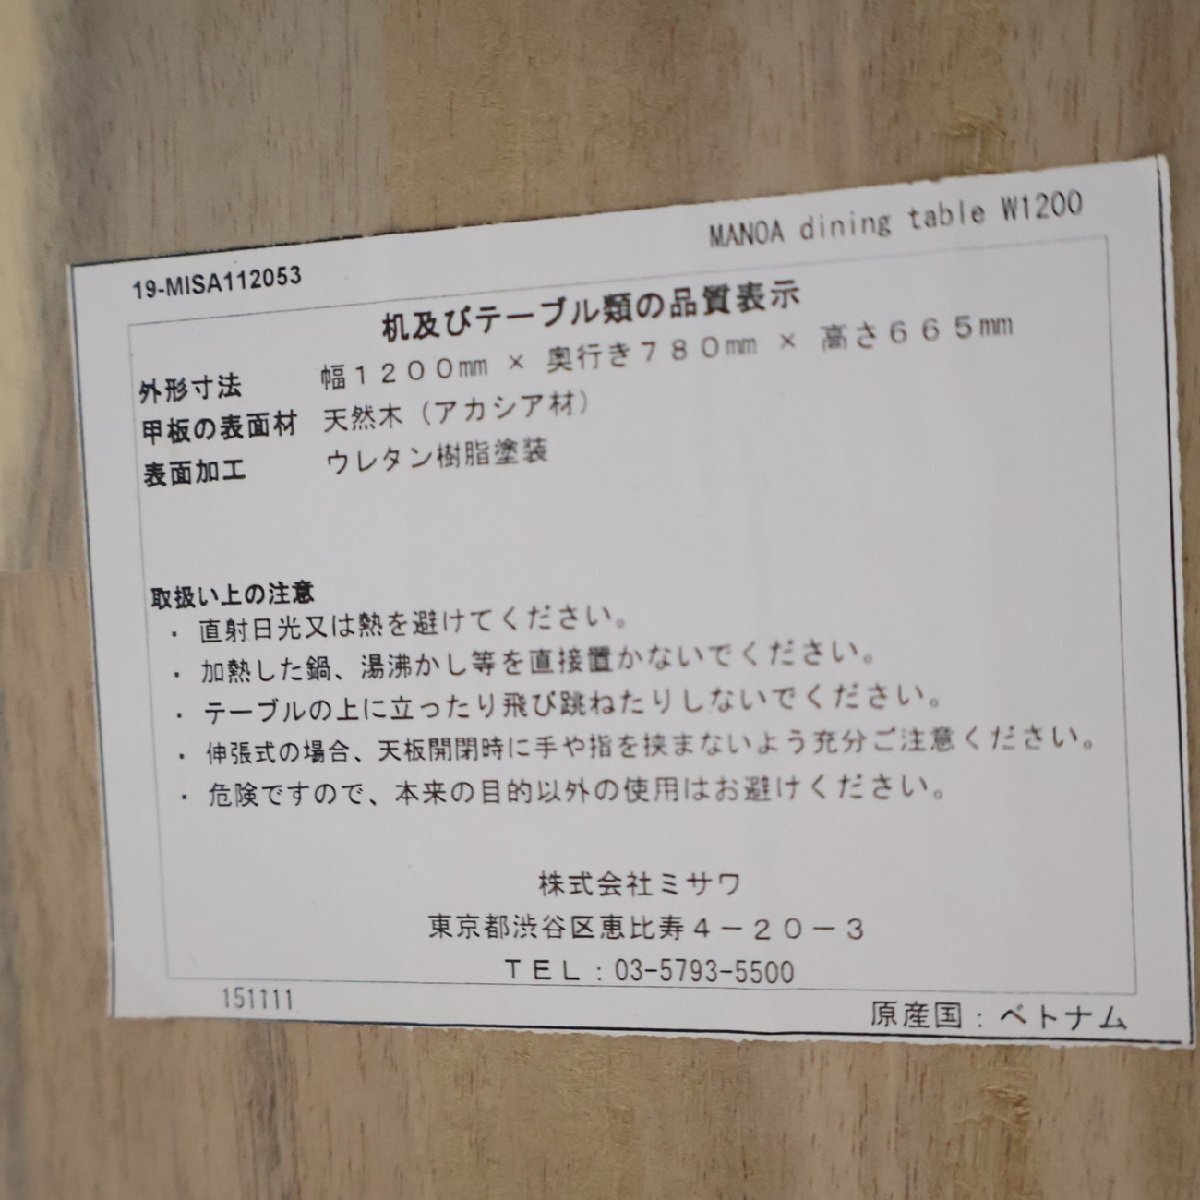 19-MISA112053
MANOA dining table W1200
机及びテーブル類の品質表示
外形寸法 幅1200mm × 奥行き780mm × 高さ665mm
甲板の表面材 天然木（アカシア材）
表面加工 ウレタン樹脂塗装
取扱い上の注意
・直射日光又は熱を避けてください。
・加熱した鍋、湯沸かし等を直接置かないでください。
・テーブルの上に立ったり飛び跳ねたりしないでください。
・伸張式の場合、天板開閉時に手や指を挟まないよう充分ご注意ください。
・危険ですので、本来の目的以外の使用はお避けください。
株式会社ミサワ
東京都渋谷区恵比寿4－20－3
TEL：03-5793-5500
151111
原産国：ベトナム